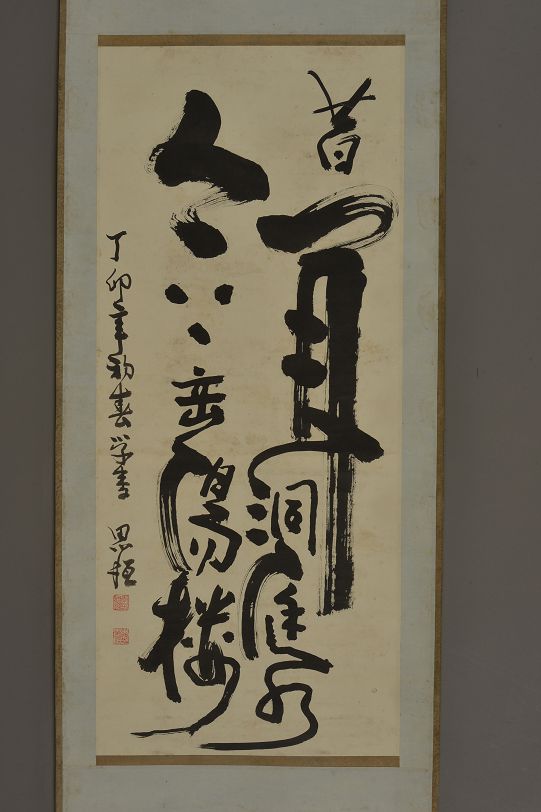 昔聞洞庭水
今上岳陽楼
丁卯年初春学書 思桓